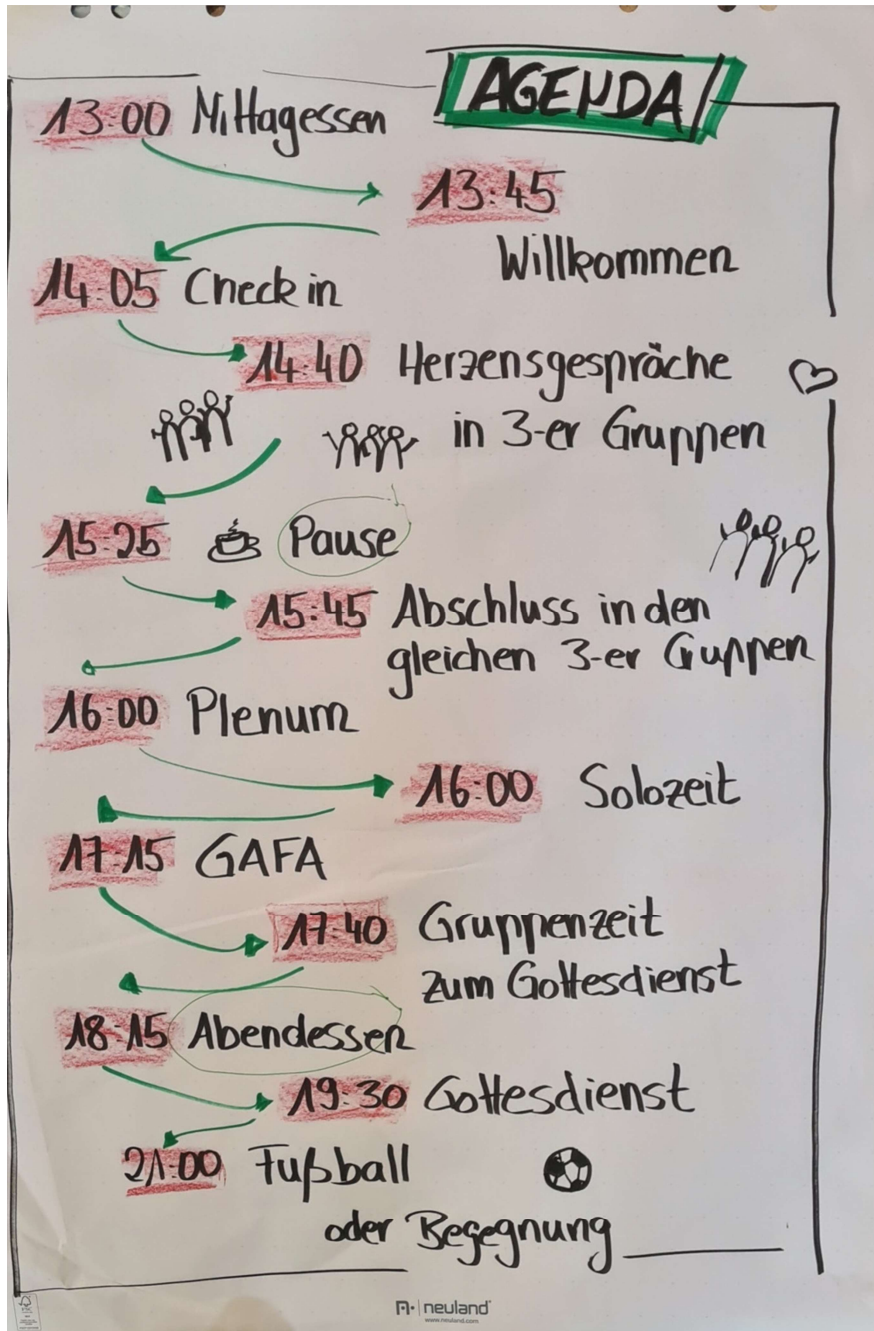 AGENDA
13:00 Mittagessen
13:45
Willkommen
14:05 Check in
14:40 Herzensgespräche
in 3-er Gruppen
15:25 Pause
15:45 Abschluss in den
gleichen 3-er Guppen
16:00 Plenum
16:00 Solozeit
17:15 GAFA
17:40 Gruppenzeit
zum Gottesdienst
18:15 Abendessen
19:30 Gottesdienst
21:00 Fußball
oder Begegnung
neuland
www.neuland.com